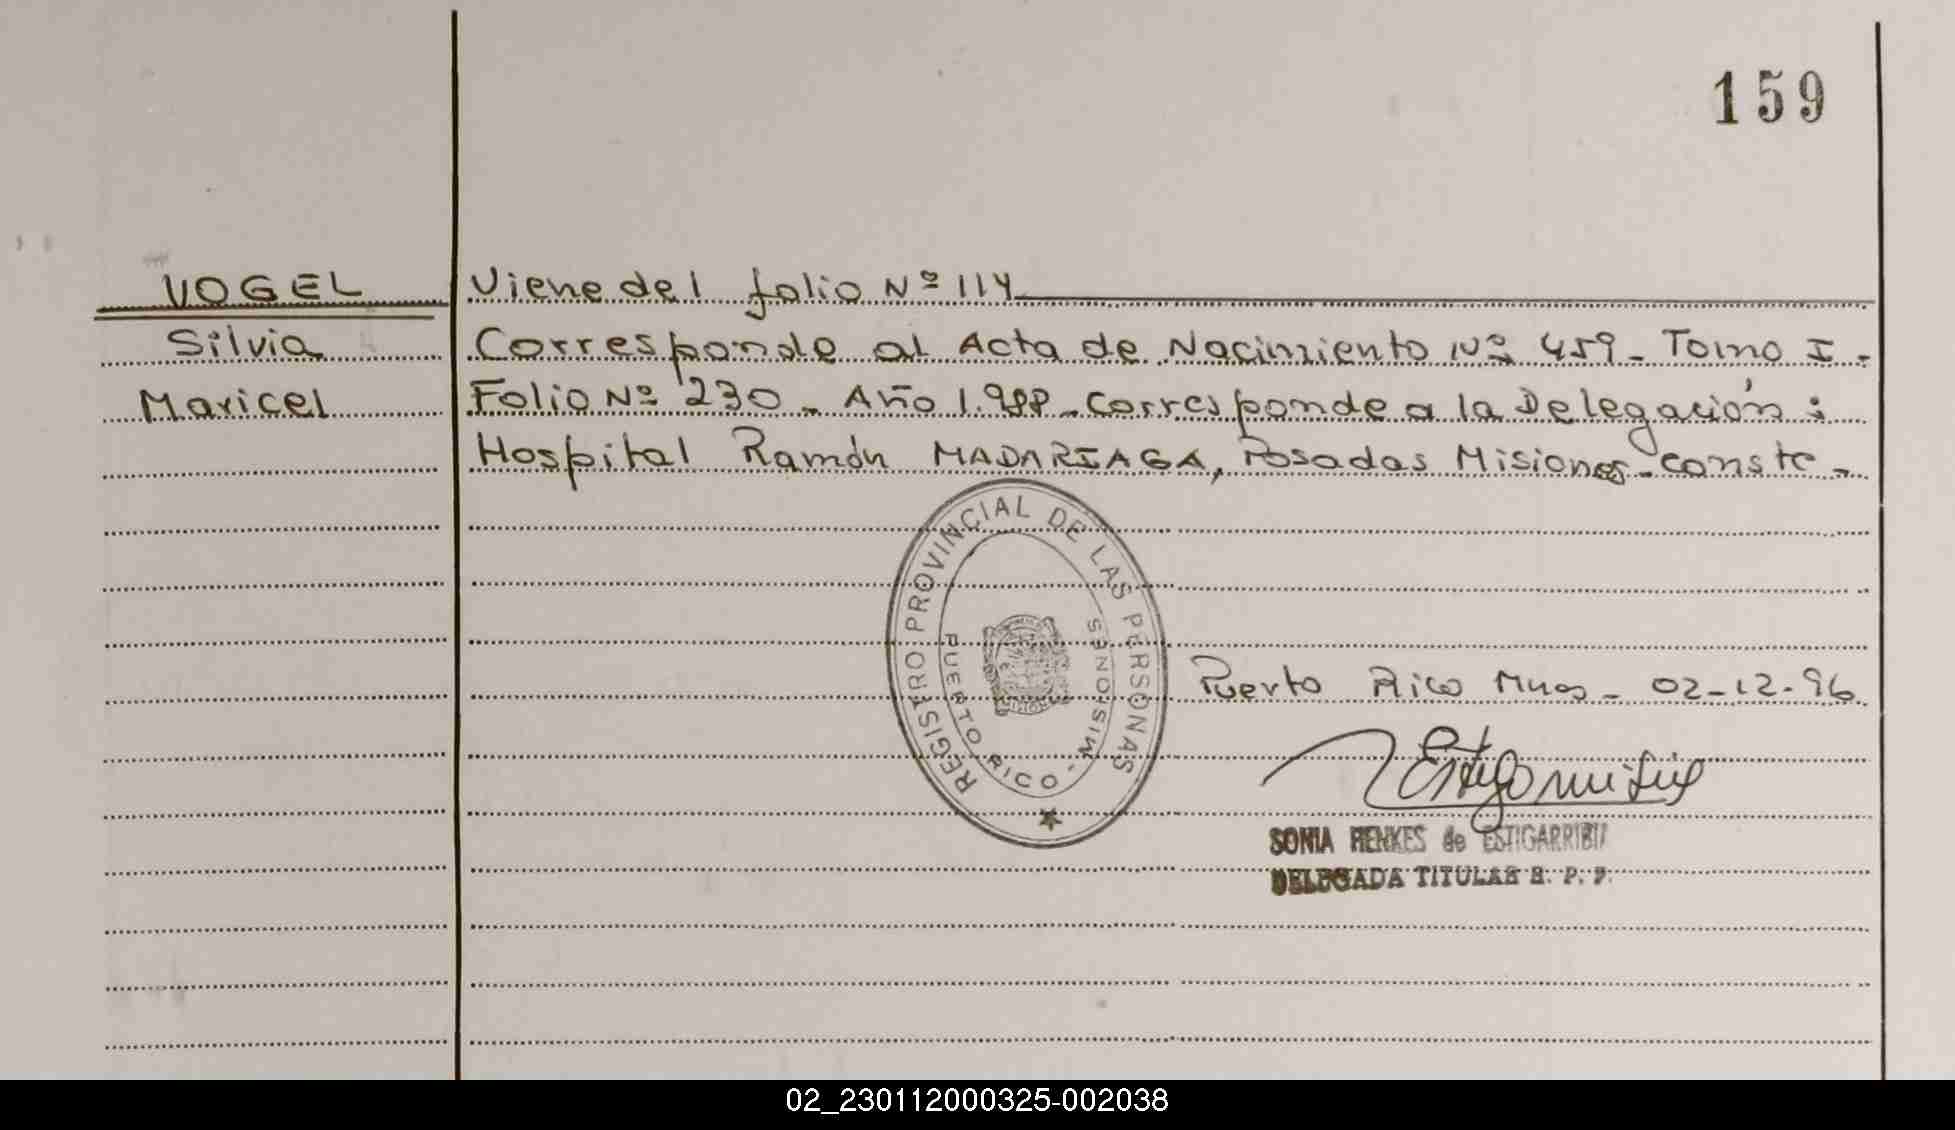 159
VOGEL
Silvia
Maricel
Viene del folio Nº 114
Corresponde al Acta de Nacimiento Nº 459_ Tomo I_
Folio Nº 230_ Año 1.988_Corresponde a la Delegación:
Hospital Ramón MADARIAGA, Posadas Misiones_conste_
REGISTRO PROVINCIAL DE LAS PERSONAS
PUERTO RICO - MISIONES
Puerto Rico Mnes_ 02-12-96
SONIA HENKES de ESTIGARRIBIA
DELEGADA TITULAR R. P. P.
02_230112000325-002038